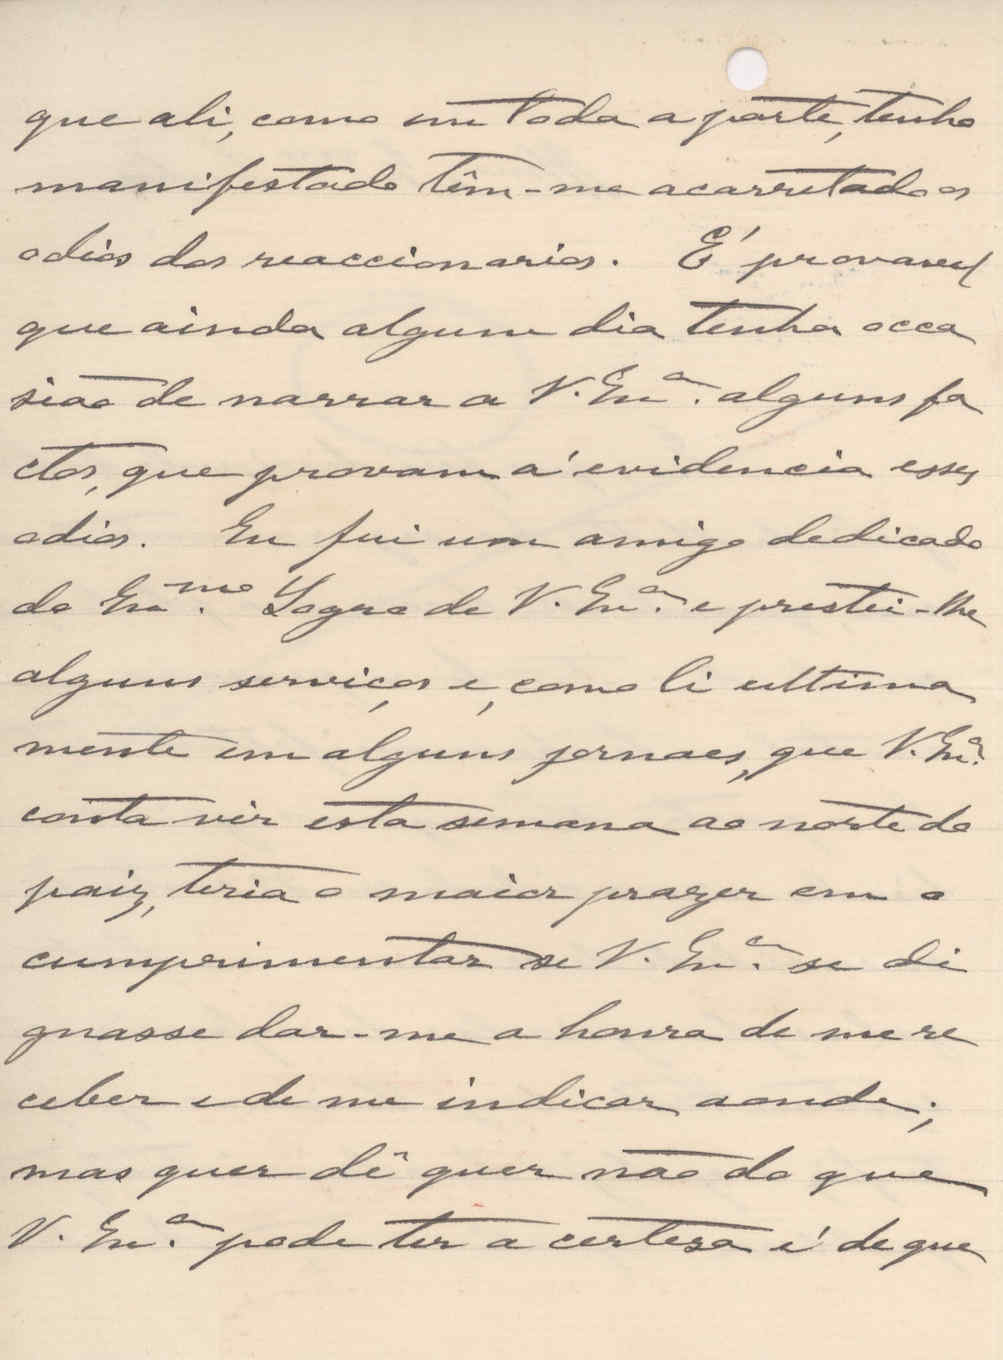 que ali, como em toda a parte, tenho
manifestado têm-me acarretado os
odios dos reaccionarios. É provavel
que ainda algum dia tenha occa
sião de narrar a V. Ex.ª alguns fa
ctos, que provam á evidencia esses
odios. Eu fui um amigo dedicado
do Ex.mo Sogro de V. Ex.ª e prestei-lhe
alguns serviços e, como li ultima
mente em alguns jornaes, que V. Ex.ª
conta vir esta semana ao norte do
paiz, teria o maior prazer em o
cumprimentar se V. Ex.ª se di
gnasse dar-me a honra de me re
ceber e de me indicar aonde;
mas quer dê quer não do que
V. Ex.ª pode ter a certesa é de que